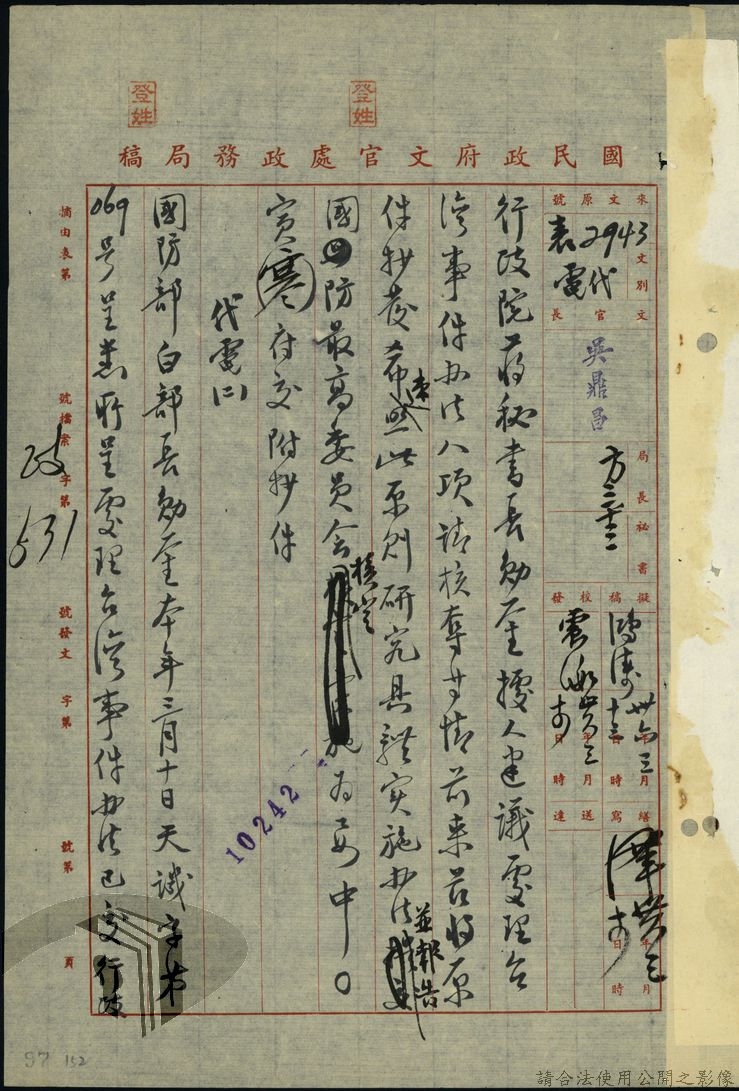 登姓
登姓
國民政府文官處政務局稿
來文原號
2943
文別
表
代電
文官長
吳鼎昌
局長
祕書
擬稿
卅六三
十三
月日時
繕寫
年月日時
校
發
年月日時
送達
行政院蔣秘書長勛鑒據人建議處理台
灣事件办法八項請核奪等情前來茲將原
件抄發希查照此原則研究具體實施办法並報告
國防最高委員會核定施為要中○
寅寒府交附抄件
代電(二)
國防部白部長勛鑒本年三月十日天識字第
069号呈悉所呈處理台灣事件办法已交行政
摘由表第
號檔案
政
字第
531
號發文
字第
號第
頁
10242
97
152
請合法使用公開之影像